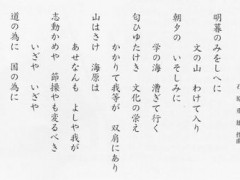 明暮のみをしへに
文の山　わけて入り
朝夕の　いそしみに
学の海　漕ぎて行く
匂ひゆたけき　文化の栄え
かかりて我等が　双肩にあり
山はさけ　海原は
あせなんも　よしや我が
志動かめや　節操や忘るべき
いざや　いざや
道の為に　国の為に